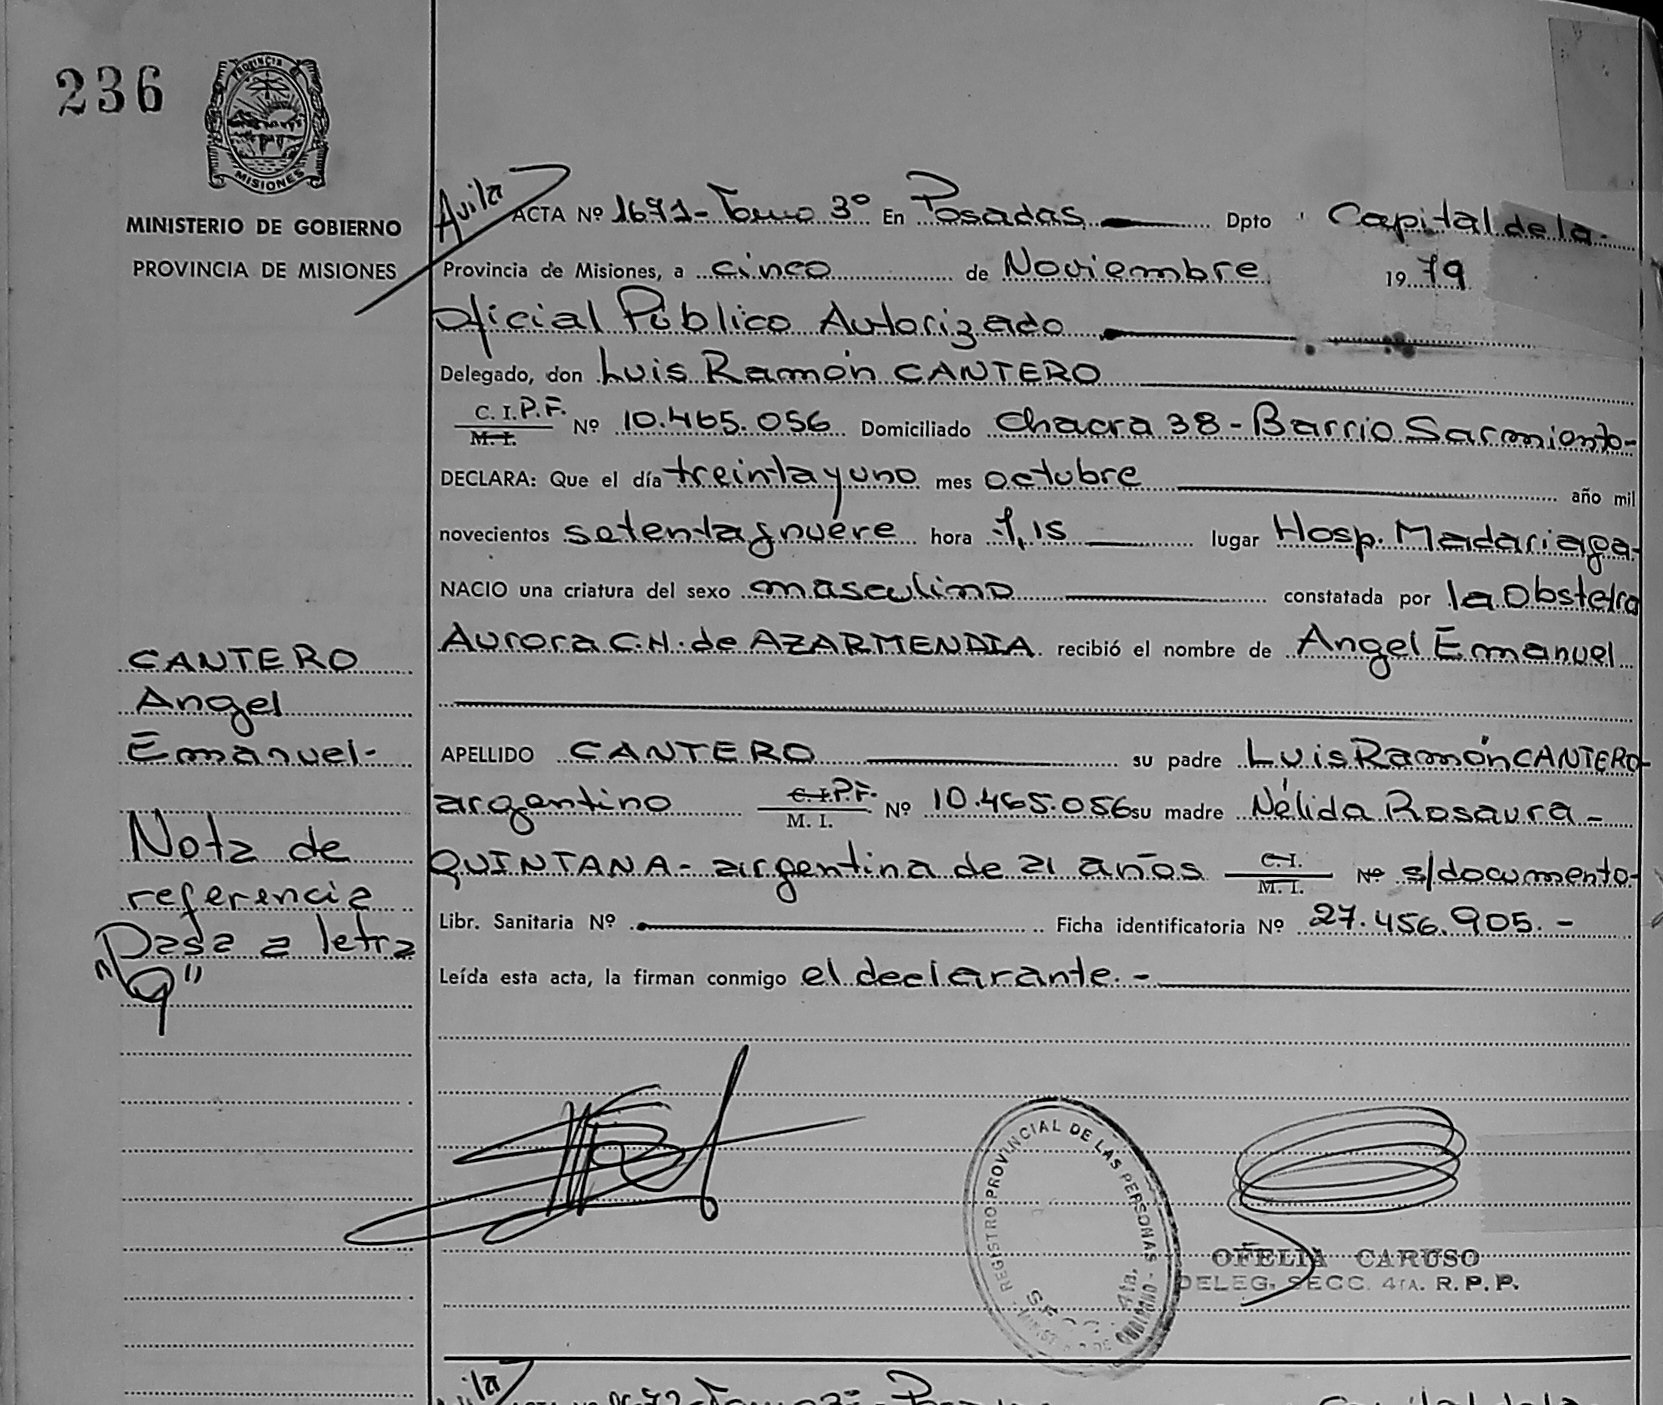 236
PROVINCIA
MISIONES
MINISTERIO DE GOBIERNO
PROVINCIA DE MISIONES
Avila
ACTA Nº 1671 - Tomo 3º En Posadas Dpto Capital de la
Provincia de Misiones, a cinco de Noviembre 1979
Oficial Público Autorizado
Delegado, don Luis Ramón CANTERO
C. I. P.F. M. I. Nº 10.465.056 Domiciliado Chacra 38 - Barrio Sarmiento -
DECLARA: Que el día treinta y uno mes octubre año mil
novecientos setenta y nueve hora 1,15 lugar Hosp. Madariaga -
NACIO una criatura del sexo masculino constatada por la Obstetra
Aurora C.H. de AZARMENDIA recibió el nombre de Angel Emanuel
APELLIDO CANTERO su padre Luis Ramón CANTERO
argentino C.I. P.F. M. I. Nº 10.465.056 su madre Nélida Rosaura -
QUINTANA - argentina de 21 años C.I. M. I. Nº s/documento -
Libr. Sanitaria Nº Ficha identificatoria Nº 27.456.905. -
Leída esta acta, la firman conmigo el declarante. -
CANTERO
Angel
Emanuel -
Nota de
referencia
Pasa a letra
"Q"
REGISTRO PROVINCIAL DE LAS PERSONAS
SECC. 4ta.
OFELIA CARUSO
DELEG. SECC. 4TA. R. P. P.
ACTA Nº 1672 Tomo 3º - Posadas Capital de la